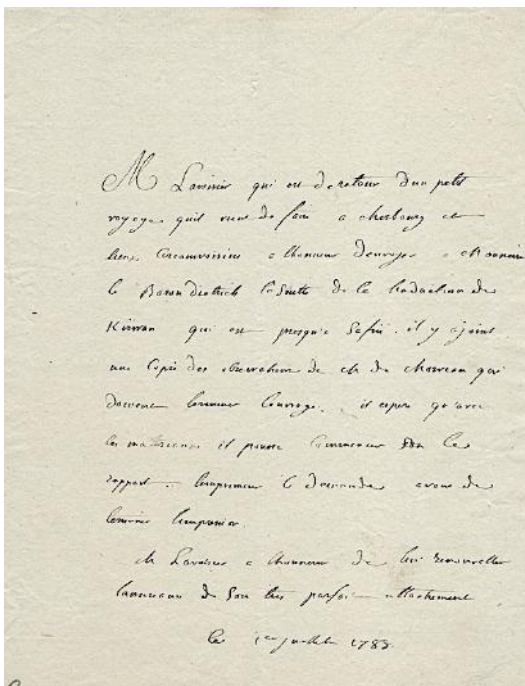 M Lavoisier qui est de retour d'un petit
voyage quil vient de faire a cherbourg et
lieux circonvoisins a lhonneur denvoyer a Monsieur
le Baron Dietrich la suite de la traduction de
Kirwan qui est presque finie. il y a joint
une copie des observations de M de Morveau qui
doivent terminer louvrage. il espere qu'avec
ces materiaux il pourra commencer le
rapport. limprimeur le demande avant de
terminer limpression.
M Lavoisier a lhonneur de lui renouveller
de son tres parfait attachement
le 1er juillet 178